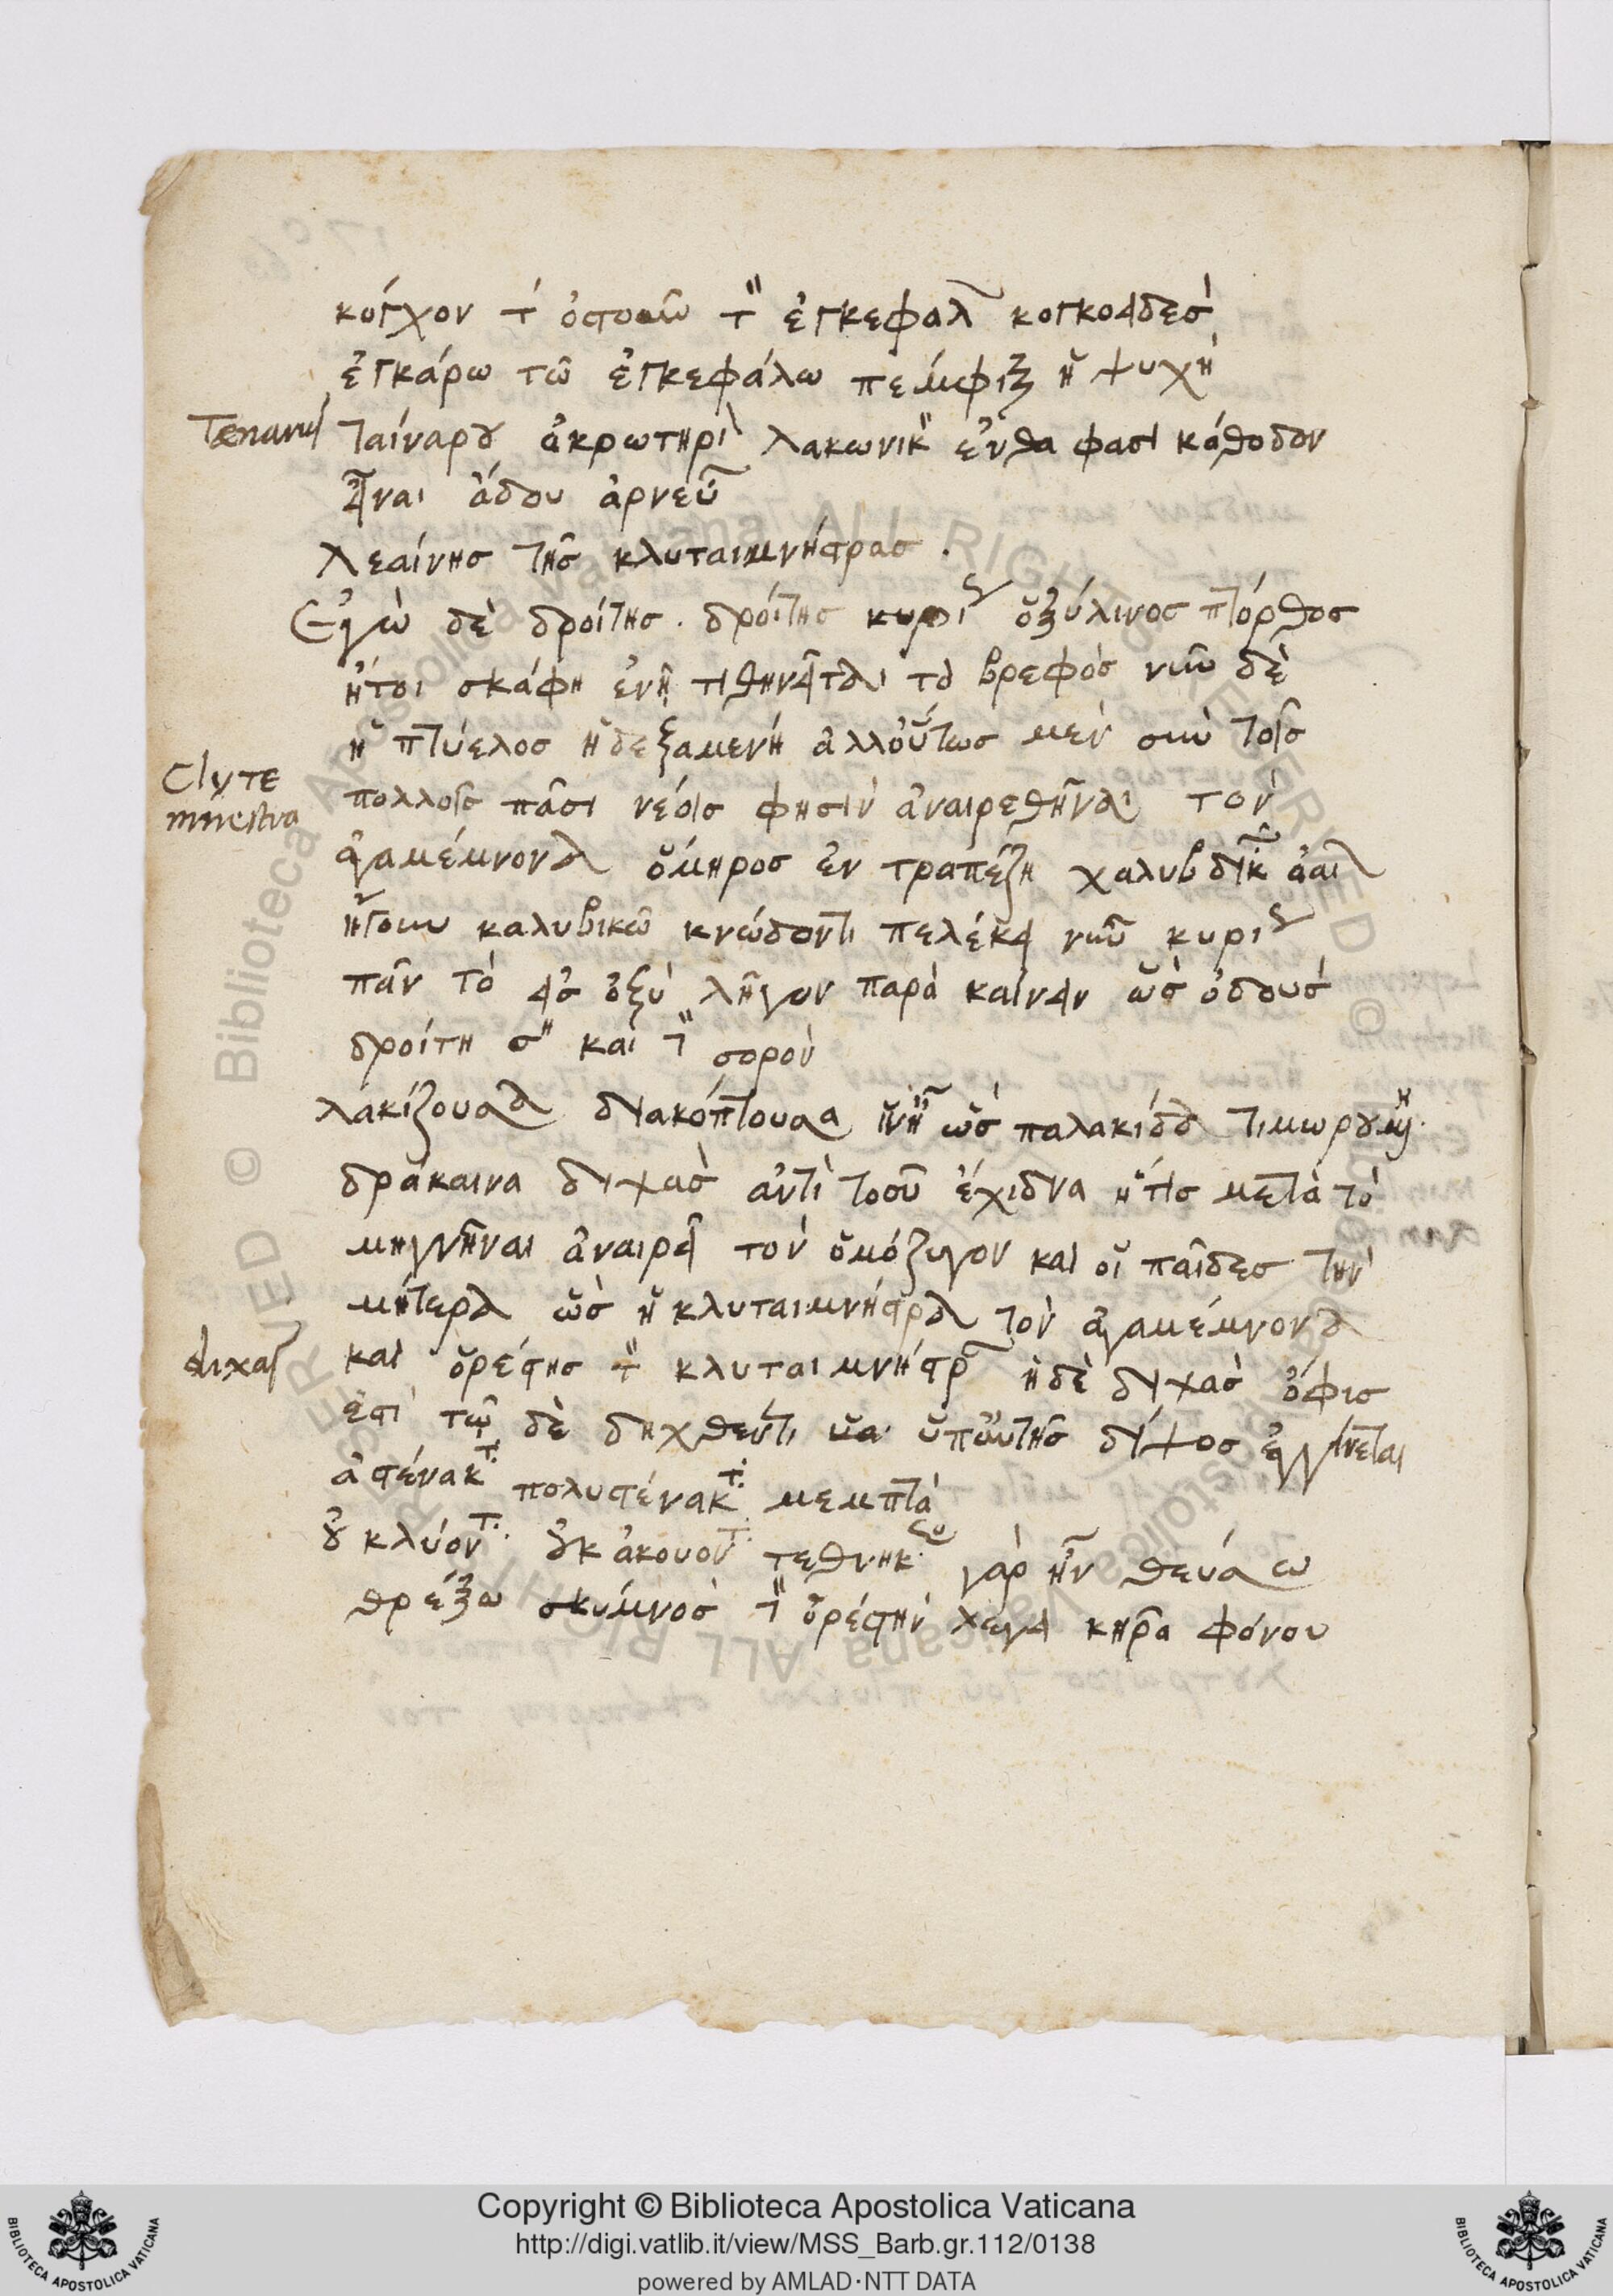 κόγχον τ́ ὀστοῶν τ̏ ἐγκεφάλ κογκοειδὲσ
ἐγκάρω τῶ ἐγκεφάλω πέμφιξ ἡ ψυχή
Tenarus
Ταίναρου ἀκρωτήρι λακωνικ̏ ἔνθα φασὶ κάθοδον
εἶναι ἅδου ἀρνεῦ
λεαίνησ τῆσ κλυταιμνήστρασ .
Ἐγὼ δὲ δροίτησ . δροίτησ κυρί ὀξύλινοσ πτόρθοσ
ἤτοι σκάφη ἐν ἧ τιθηνεῖται τὸ βρεφὸσ νῦν δὲ
ἡ πτύελοσ ἡ δεξαμενή ἀλλ οὕτωσ μεν σὺν τοῖσ
Clyte
mnestra
πολλοῖσ πᾶσι νέοισ φησὶν ἀναιρεθῆναι τὸν
ἀγαμέμνονα ὅμηροσ ἐν τραπέζη χαλυβδικ
ἤγουν καλυβικῶ κνώδοντι πελέκει νῦν κυρι
πᾶν τὸ εἰσ ὀξὺ λῆγον παρὰ καίνειν ὡσ ὀδουσ
δροίτη σ̏ καὶ τ̏ σορον
λακίζουσα διακόπτουσα ὡσ παλακίδα τιμωρου
δράκαινα διψὰσ ἀντὶ τοῦ ἔχιδνα ἥτισ μετὰ τὸ
μιγνῆναι ἀναιρεῖ τὸν ὁμόζυγον καὶ οἱ παῖδεσ τὴν
μητέρα ὡσ ἡ κλυταιμνήστρα τὸν ἀγαμέμνονα
dipsas
καὶ ὀρέστησ τ̏ κλυταιμνήστρ ἡ δὲ διψὰσ ὄφισ
ἐστί τῶ δὲ δηχθέντι ὑπ αὐτῆσ δίψοσ ἐγγίνεται
ἀστένακτ πολυστένακτ μεμπτά
οὐ κλύοντ οὐκ ἀκούοντ τεθνηκ γὰρ ἦν θευάσω
θρέξω σκύμνοσ τ̏ ὀρέστην λέγει κῆρα φόνου
Copyright © Biblioteca Apostolica Vaticana
http://digi.vatlib.it/view/MSS_Barb.gr.112/0138
powered by AMLAD·NTT DATA